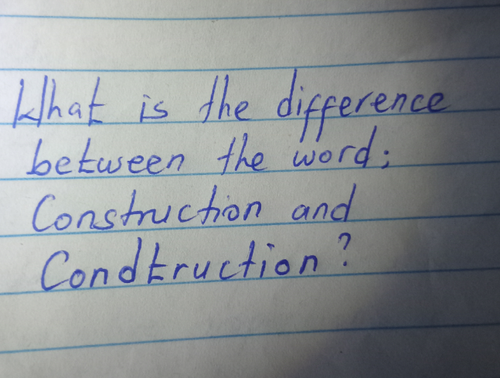 What is the difference
between the word;
Construction and
Condtruction?